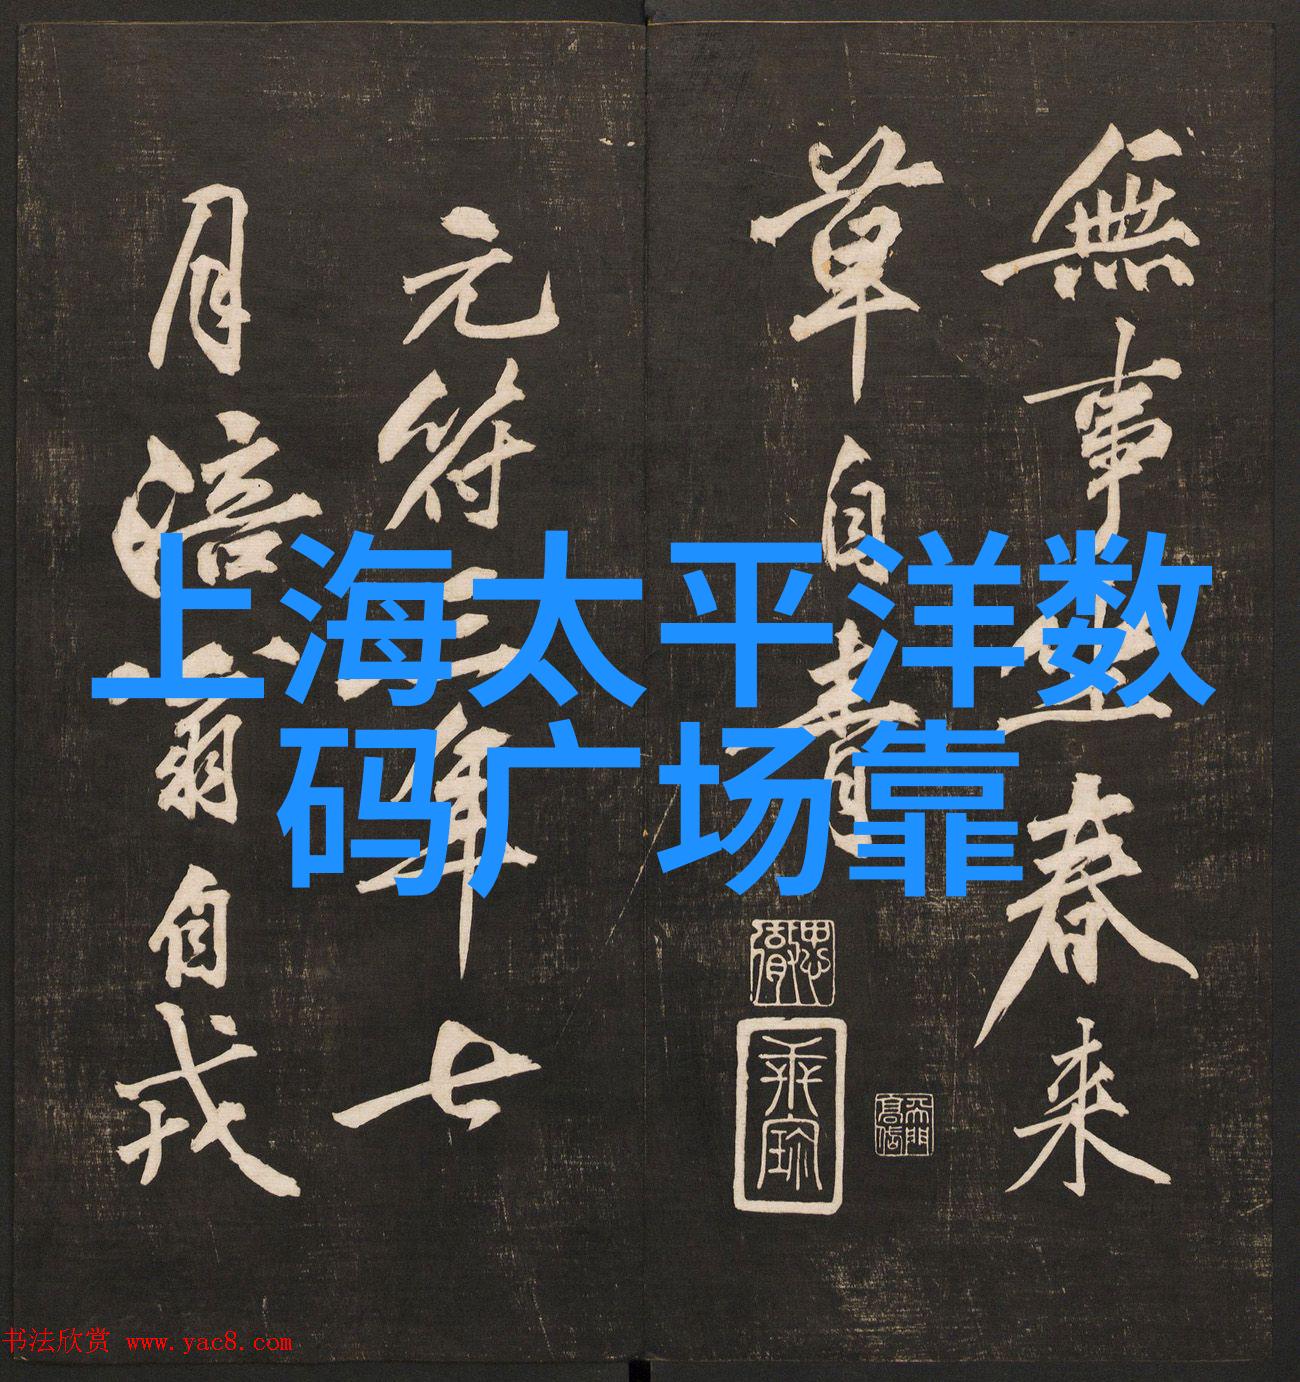 無事此春来
草自青
元符三年七
月涪翁自戎
上海太平洋数
码广场靠
书法欣赏 www.yac8.com